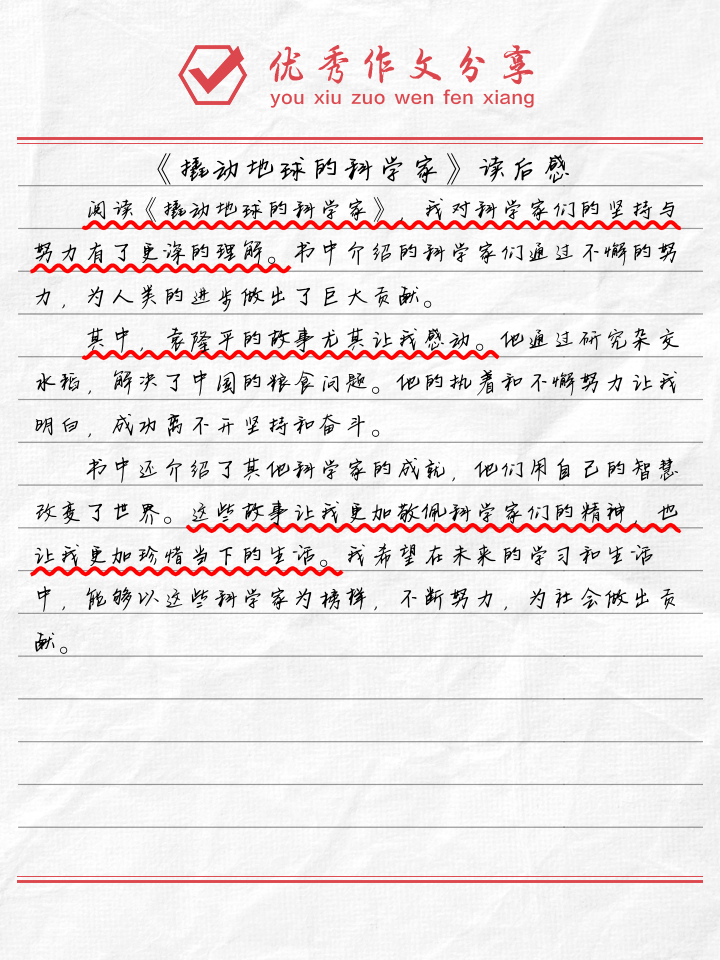 优秀作文分享
you xiu zuo wen fen xiang
《撬动地球的科学家》读后感
阅读《撬动地球的科学家》，我对科学家们的坚持与
努力有了更深的理解。书中介绍的科学家们通过不懈的努
力，为人类的进步做出了巨大贡献。
其中，袁隆平的故事尤其让我感动。他通过研究杂交
水稻，解决了中国的粮食问题。他的执着和不懈努力让我
明白，成功离不开坚持和奋斗。
书中还介绍了其他科学家的成就，他们用自己的智慧
改变了世界。这些故事让我更加敬佩科学家们的精神，也
让我更加珍惜当下的生活。我希望在未来的学习和生活
中，能够以这些科学家为榜样，不断努力，为社会做出贡
献。